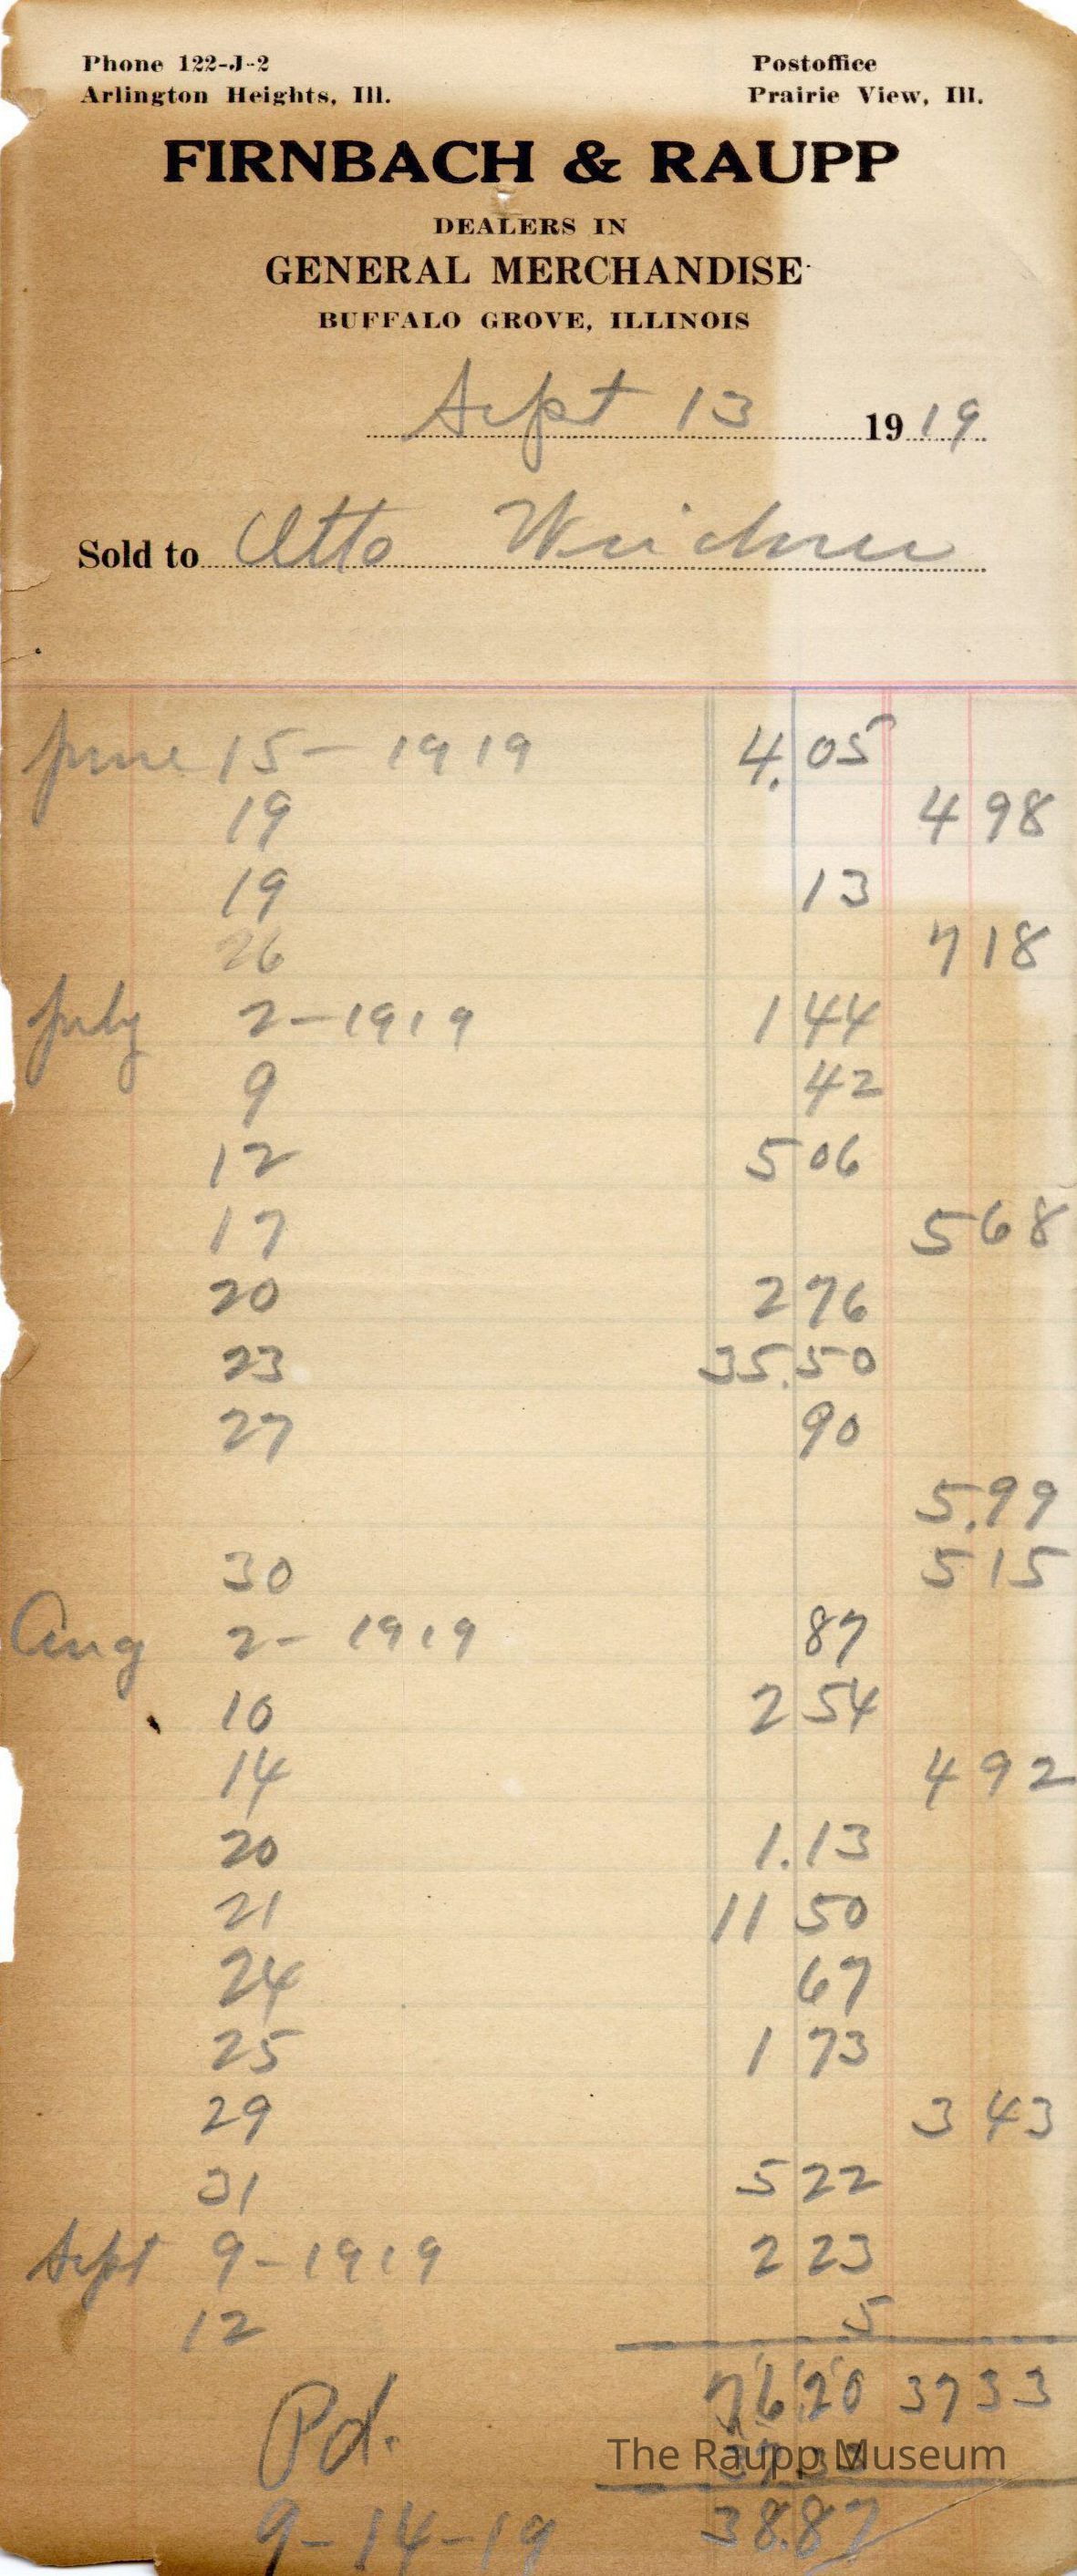 Phone 122-J-2 Postoffice
Arlington Heights, Ill. Prairie View, Ill.
FIRNBACH & RAUPP
DEALERS IN
GENERAL MERCHANDISE
BUFFALO GROVE, ILLINOIS
Sept 13 1919
Sold to Otto Weidner
June 15 - 1919 4.05
19 4 98
19 13
26 7 18
July 2 - 1919 1 44
9 42
12 5 06
17 5 68
20 2 76
23 35.50
27 90
5.99
30 5 15
Aug 2 - 1919 87
10 2 54
14 4 92
20 1.13
21 11 50
24 67
25 1 73
29 3 43
31 5 22
Sept 9 - 1919 2 23
12 5
76 20 37 33
Pd. 37 33
The Raupp Museum
9-14-19 38.87